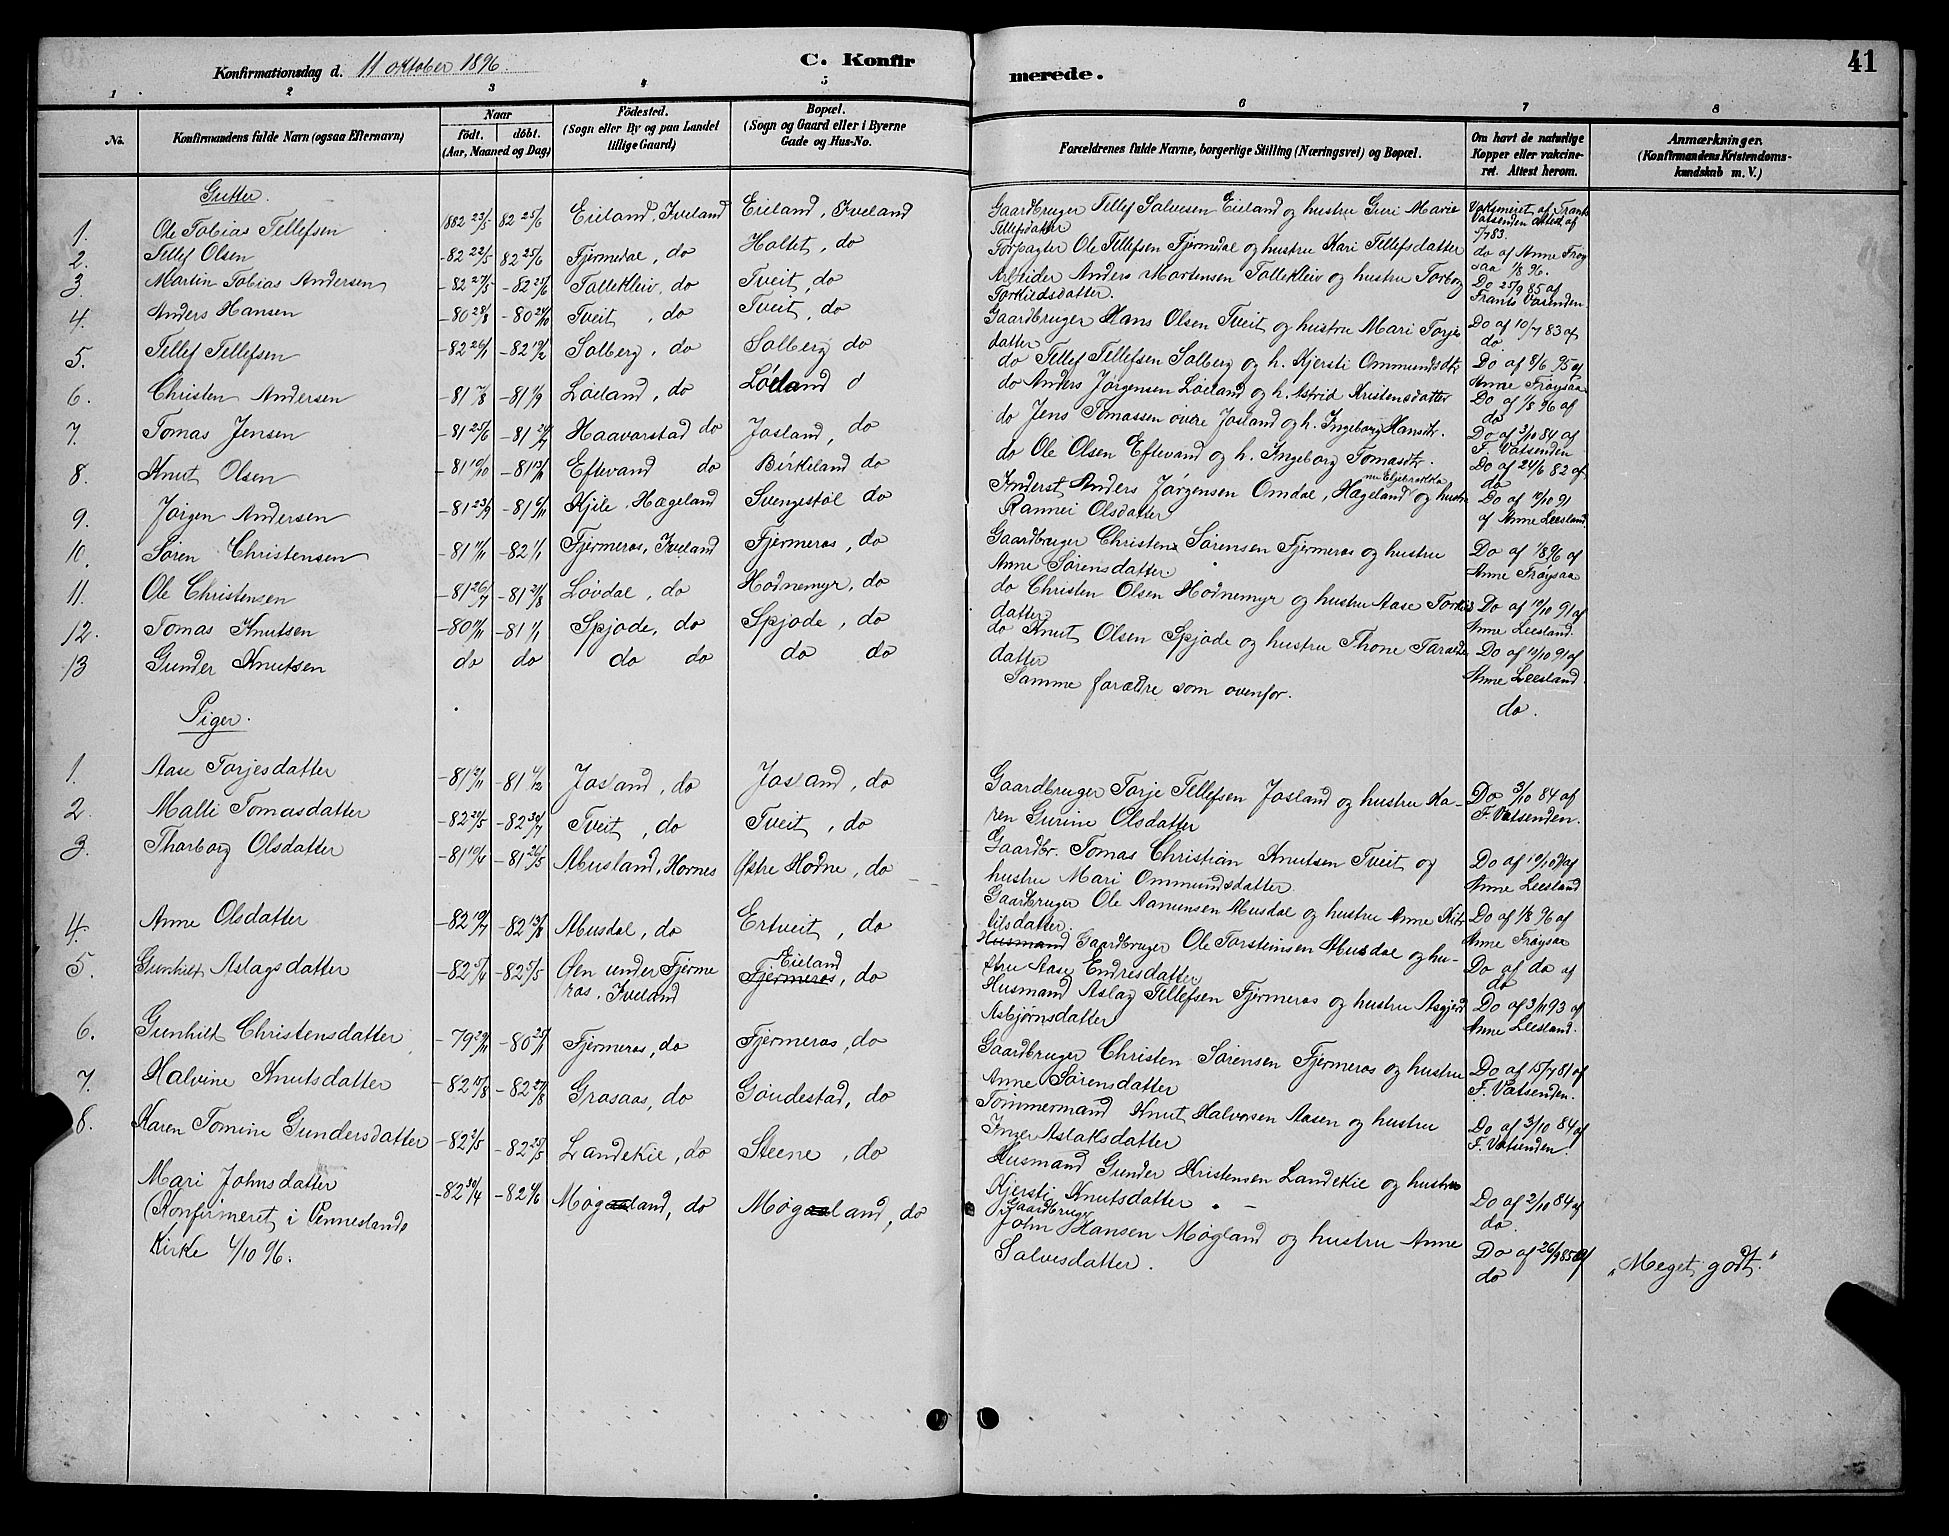 Konfirmationsdag d. 11 oktober 1896.
C. Konfirmerede.
41
1 2 3 4 5 6 7 8
No.
Konfirmandens fulde Navn (ogsaa Efternavn)
Naar
födt. döbt.
(Aar, Maaned og Dag)
Födested.
(Sogn eller By og paa Landet
tillige Gaard)
Bopæl.
(Sogn og Gaard eller i Byerne
Gade og Hus-No.
Forældrenes fulde Navne, borgerlige Stilling (Næringsvei) og Bopæl.
Om havt de naturlige
Kopper eller vakcine-
ret. Attest herom.
Anmærkninger.
(Konfirmandens Kristendoms-
kundskab m. V.)
Gutter.
1. Ole Tobias Tellefsen 1882 23/5 82 25/6 Eieland, Iveland Eieland, Iveland
Gaardbruger Tellef Salvesen Eieland og hustru Guri Marie
Tellefsdatter
Vaksineret af Frants
Vatsenden attest af
7/83.
2. Tellef Olsen -82 22/5 82 25/6 Fjermedal, do Holtet, do
Forpagter Ole Tellefsen Fjermedal og hustru Kari Tellefsdatter
do af Anne Frøy
saa 1/8 96.
3. Martin Tobias Andersen -82 27/5 -82 25/6 Tallekleiv, do Tveit, do
Arbeider Anders Mortensen Tallekleiv og hustru Torborg
Torkildsdatter.
Do 25/9 85 af
Frants Vatsenden
4. Anders Hansen -80 28/8 -80 24/10 Tveit, do Tveit, do
Gaardbruger Hans Olsen Tveit og hustru Mari Torjes
datter
Do af 10/7 83 af
do
5. Tellef Tellefsen -82 26/1 -82 19/2 Solberg, do Solberg do
do Tellef Tellefsen Solberg og h. Kjersti Ommundsdtr
Do af 8/6 95 af
Anne Frøysaa
6. Christen Andersen -81 7/8 -81 1/9 Løeland, do Løeland d
do Anders Jørgensen Løeland og h. Astrid Kristensdatter
Do af 1/8 96 af
do
7. Tomas Jensen -81 25/6 -81 24/7 Haavorstad do Josland, do
do Jens Tomassen övere Josland og h. Ingeborg Hansdtr.
Do af 3/10 84 af
F. Vatsenden
8. Knut Olsen -81 19/10 -81 13/11 Eftevand do Birkeland do
do Ole Olsen Eftevand og h. Ingeborg Tomasdtr.
Do af 24/6 82 af
do
9. Jørgen Andersen -81 23/9 -81 6/11 Kjile, Hægeland Svengestøl do
Inderst Anders Jørgensen Omdal, Hægeland og hustru
Rannei Olsdatter
Do af 10/10 91
af Anne Leesland
10. Søren Christensen -81 11/11 -82 1/1 Fjermeros, Iveland Fjermeros, do
Gaardbruger Christen Sørensen Fjermeros og hustru
Anne Sørensdatter.
Do af 1/8 96 af
Anne Frøysaa
11. Ole Christensen -81 26/7 -81 21/8 Løvdal, do Hodnemyr, do
do Christen Olsen Hodnemyr og hustru Aase Torkels
datter
Do af 10/10 91 af
Anne Leesland
12. Tomas Knutsen -80 11/11 -81 1/1 Spjode, do Spjode, do
do Knut Olsen Spjode og hustru Thone Taralds
datter
Do af 10/10 91 af
Anne Leesland.
13 Gunder Knutsen do do do do do do
Samme foræltre som ovenfor.
do.
Piger.
1. Aase Torjesdatter -81 2/11 -81 4/12 Josland, do Josland, do
Gaardbruger Torje Tellefsen Josland og hustru Ka-
ren Gurine Olsdatter
Do 3/10 84 af
F. Vatsenden.
2. Malli Tomasdatter -82 20/5 -82 30/7 Tveit, do Tveit, do
Gaardbr. Tomas Christian Knutsen Tveit og
hustru Mari Ommundsdatter.
Do af 10/10 91 af
Anne Leesland
3. Thorborg Olsdatter -81 19/4 -81 26/5 Abusland, Hornes Østre Hodne, do
Gaardbruger Ole Aanensen Abusdal og hustru Anne Kit
tilsdatter.
Do af 1/8 96 af
Anne Frøysaa
4. Anne Olsdatter -82 10/7 -82 13/8 Abusdal, do Ertveit, do
Husmand Gaardbruger Ole Torsteinsen Abusdal og hu-
stru Aase Endresdatter
Do af do af
do
5. Gunhilt Aslagsdatter -82 5/4 -82 5/5 Øen under Fjerme
ros, Iveland
Eieland
Fjermeros, do
Husmand Aslag Tellefsen Fjermeros og hustru Asgjerd
Asbjørnsdatter
Do af 3/11 93 af
Anne Leesland.
6. Gunhilt Christensdatter -79 29/11 -80 25/1 Fjermeros, do Fjermeros, do
Gaardbruger Christen Sørensen Fjermeros og hustru
Anne Sørensdatter
Do af 15/7 81 af
F. Vatsenden.
7. Halvine Knutsdatter -82 15/8 -82 27/8 Grosaas, do Goudestad, do
Tømmermand Knut Halvorsen Aasen og hustru
Inger Aslaksdatter
Do af 3/10 84 af
F. Vatsenden.
8. Karen Tomine Gundersdatter -82 2/5 -82 28/5 Landekie, do Steene, do
Husmand Gunder Kristensen Landekie og hustru
Kjersti Knutsdatter.
Do af 2/10 84 af
do.
Mari Johnsdatter -82 30/4 -82 4/6 Møgland, do Møgland, do
(Konfirmeret i Vennesland
Kirke 4/10 96.
Gaardbruger
John Hansen Møgland og hustru Anne
Salvesdatter.
Do af 26/9 85 af
do
"Meget godt."